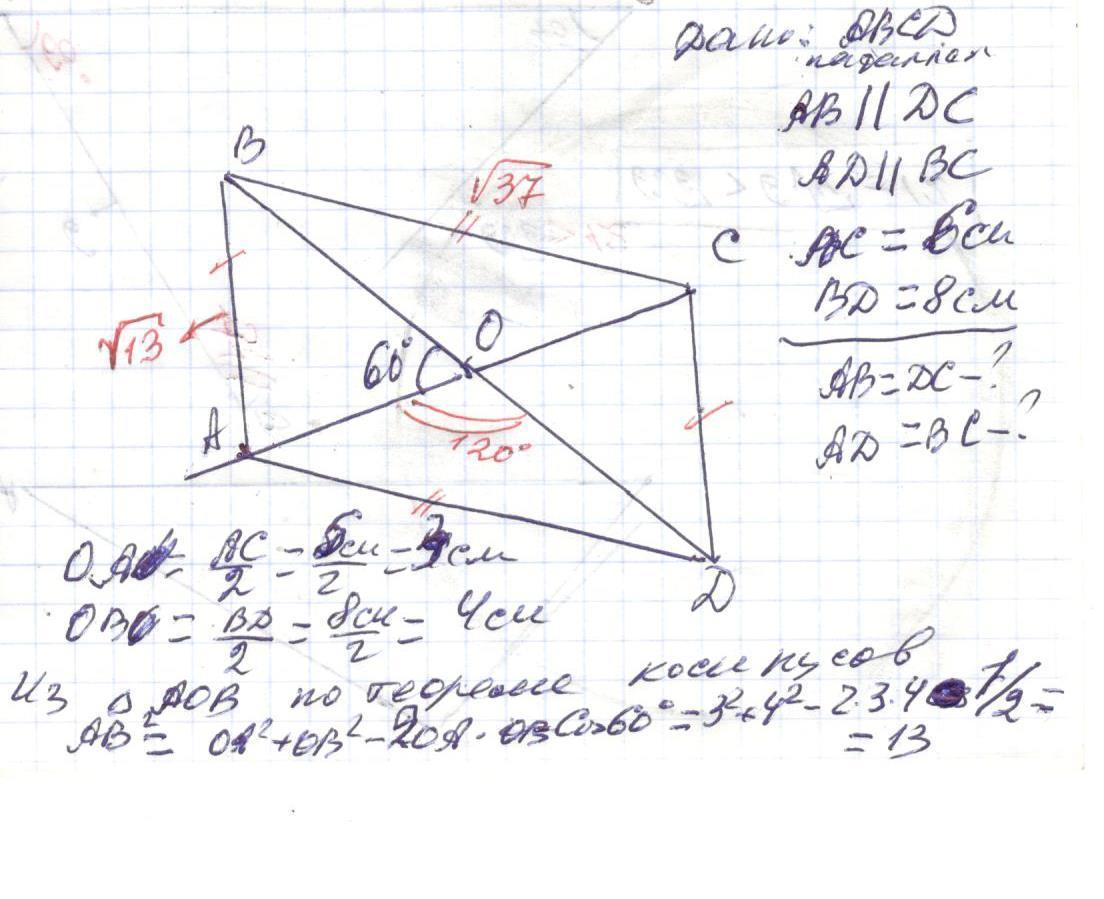 Дано: ABCD
параллел
AB || DC
AD || BC
AC = 6см
BD = 8см
AB = DC - ?
AD = BC - ?
B
√37
C
O
60°
√13
A
120°
D
OA = AC/2 = 6см/2 = 3см
OB = BD/2 = 8см/2 = 4см
Из △ AOB по теореме косинусов
AB² = OA² + OB² - 2OA · OB Cos60° = 3² + 4² - 2·3·4 1/2 =
= 13